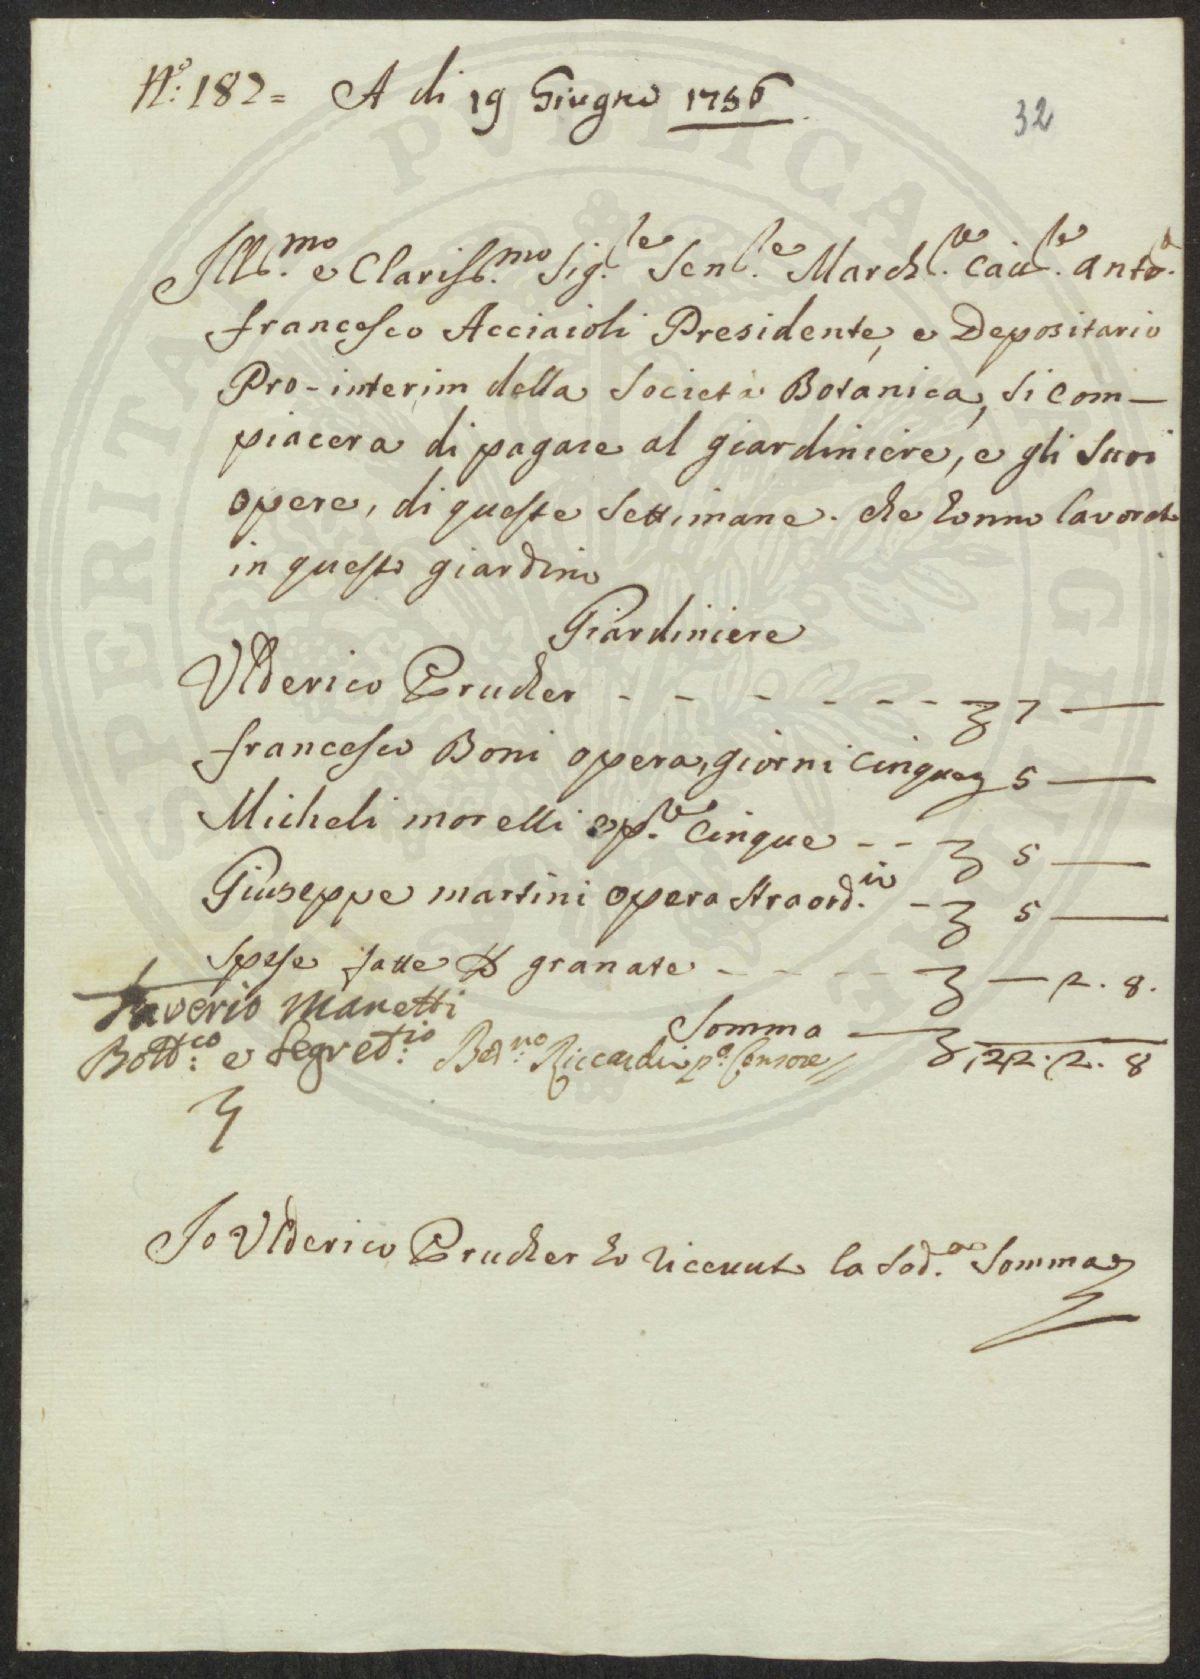 N.º 182 = A di 19 Giugno 1756
32
Ill.mo e Clariss.mo Sig.le Sen.le March.e Cav.le Anto.
francesco Acciaioli Presidente, e Depositario
Pro-interim della Societa Botanica, si com-
piacera di pagare al giardiniere, e gli Suoi
opere, di queste settimane. che hanno lavorato
in questo giardino
Giardiniere
Ulderico Prucher - - - - - - - 7 —
francesco Boni opera, giorni cinque 5 —
Micheli morelli op.e cinque - - 5 —
Giuseppe martini opera straord.io - 5 —
spese fatte p granate - - - - — 2. 8.
Saverio Manetti
Bott.co e Segret.io Ber.no Riccardi p.o Censore
Somma — 22. 2. 8
Io Ulderico Prucher ho riceuuto la sod.a Somma
SPERITAT PVBLICA